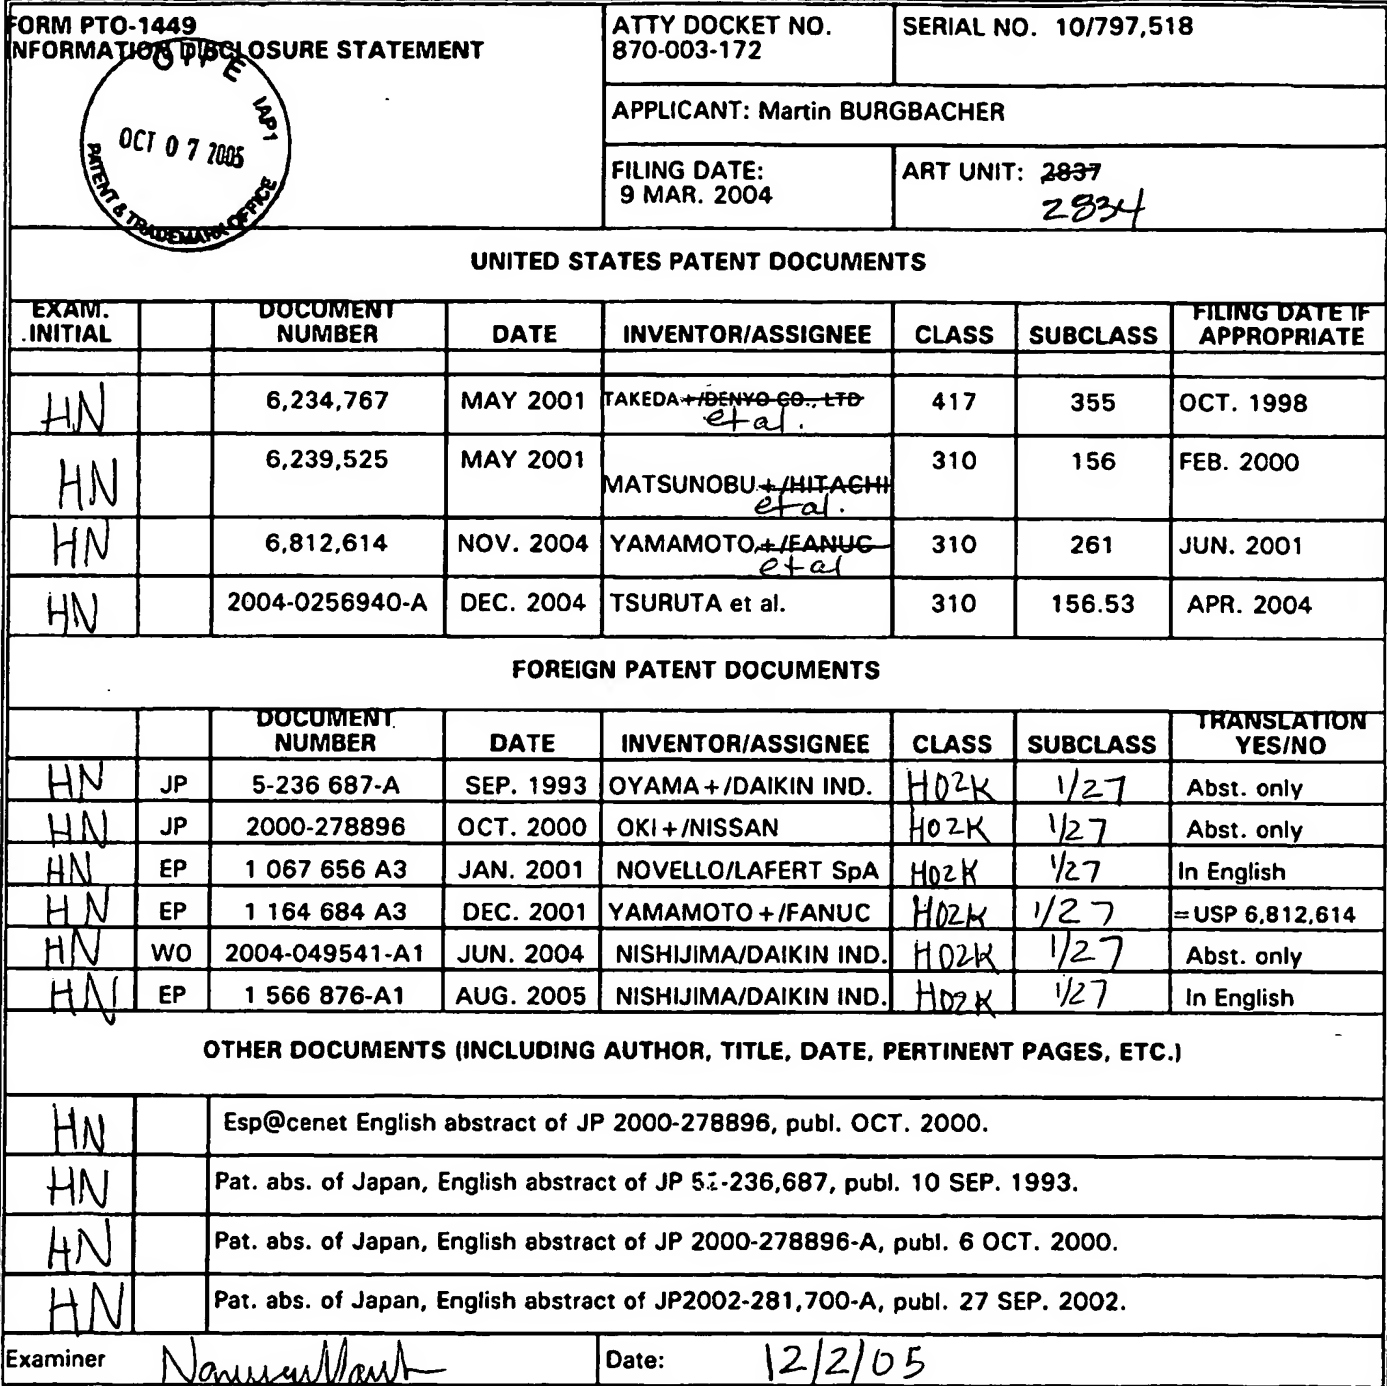 FORM PTO-1449
INFORMATION DISCLOSURE STATEMENT
ATTY DOCKET NO.
870-003-172
SERIAL NO. 10/797,518
OIPE IAP1
OCT 07 2005
PATENT & TRADEMARK OFFICE
APPLICANT: Martin BURGBACHER
FILING DATE:
9 MAR. 2004
ART UNIT: 2837
2834
UNITED STATES PATENT DOCUMENTS
EXAM. INITIAL DOCUMENT NUMBER DATE INVENTOR/ASSIGNEE CLASS SUBCLASS FILING DATE IF APPROPRIATE
HN 6,234,767 MAY 2001 TAKEDA+/DENYO CO., LTD et al. 417 355 OCT. 1998
HN 6,239,525 MAY 2001 MATSUNOBU+/HITACHI et al. 310 156 FEB. 2000
HN 6,812,614 NOV. 2004 YAMAMOTO+/FANUC et al 310 261 JUN. 2001
HN 2004-0256940-A DEC. 2004 TSURUTA et al. 310 156.53 APR. 2004
FOREIGN PATENT DOCUMENTS
DOCUMENT NUMBER DATE INVENTOR/ASSIGNEE CLASS SUBCLASS TRANSLATION YES/NO
HN JP 5-236 687-A SEP. 1993 OYAMA+/DAIKIN IND. H02K 1/27 Abst. only
HN JP 2000-278896 OCT. 2000 OKI+/NISSAN H02K 1/27 Abst. only
HN EP 1 067 656 A3 JAN. 2001 NOVELLO/LAFERT SpA H02K 1/27 In English
HN EP 1 164 684 A3 DEC. 2001 YAMAMOTO+/FANUC H02K 1/27 =USP 6,812,614
HN WO 2004-049541-A1 JUN. 2004 NISHIJIMA/DAIKIN IND. H02K 1/27 Abst. only
HN EP 1 566 876-A1 AUG. 2005 NISHIJIMA/DAIKIN IND. H02K 1/27 In English
OTHER DOCUMENTS (INCLUDING AUTHOR, TITLE, DATE, PERTINENT PAGES, ETC.)
HN Esp@cenet English abstract of JP 2000-278896, publ. OCT. 2000.
HN Pat. abs. of Japan, English abstract of JP -236,687, publ. 10 SEP. 1993.
HN Pat. abs. of Japan, English abstract of JP 2000-278896-A, publ. 6 OCT. 2000.
HN Pat. abs. of Japan, English abstract of JP2002-281,700-A, publ. 27 SEP. 2002.
Examiner Date: 12/2/05